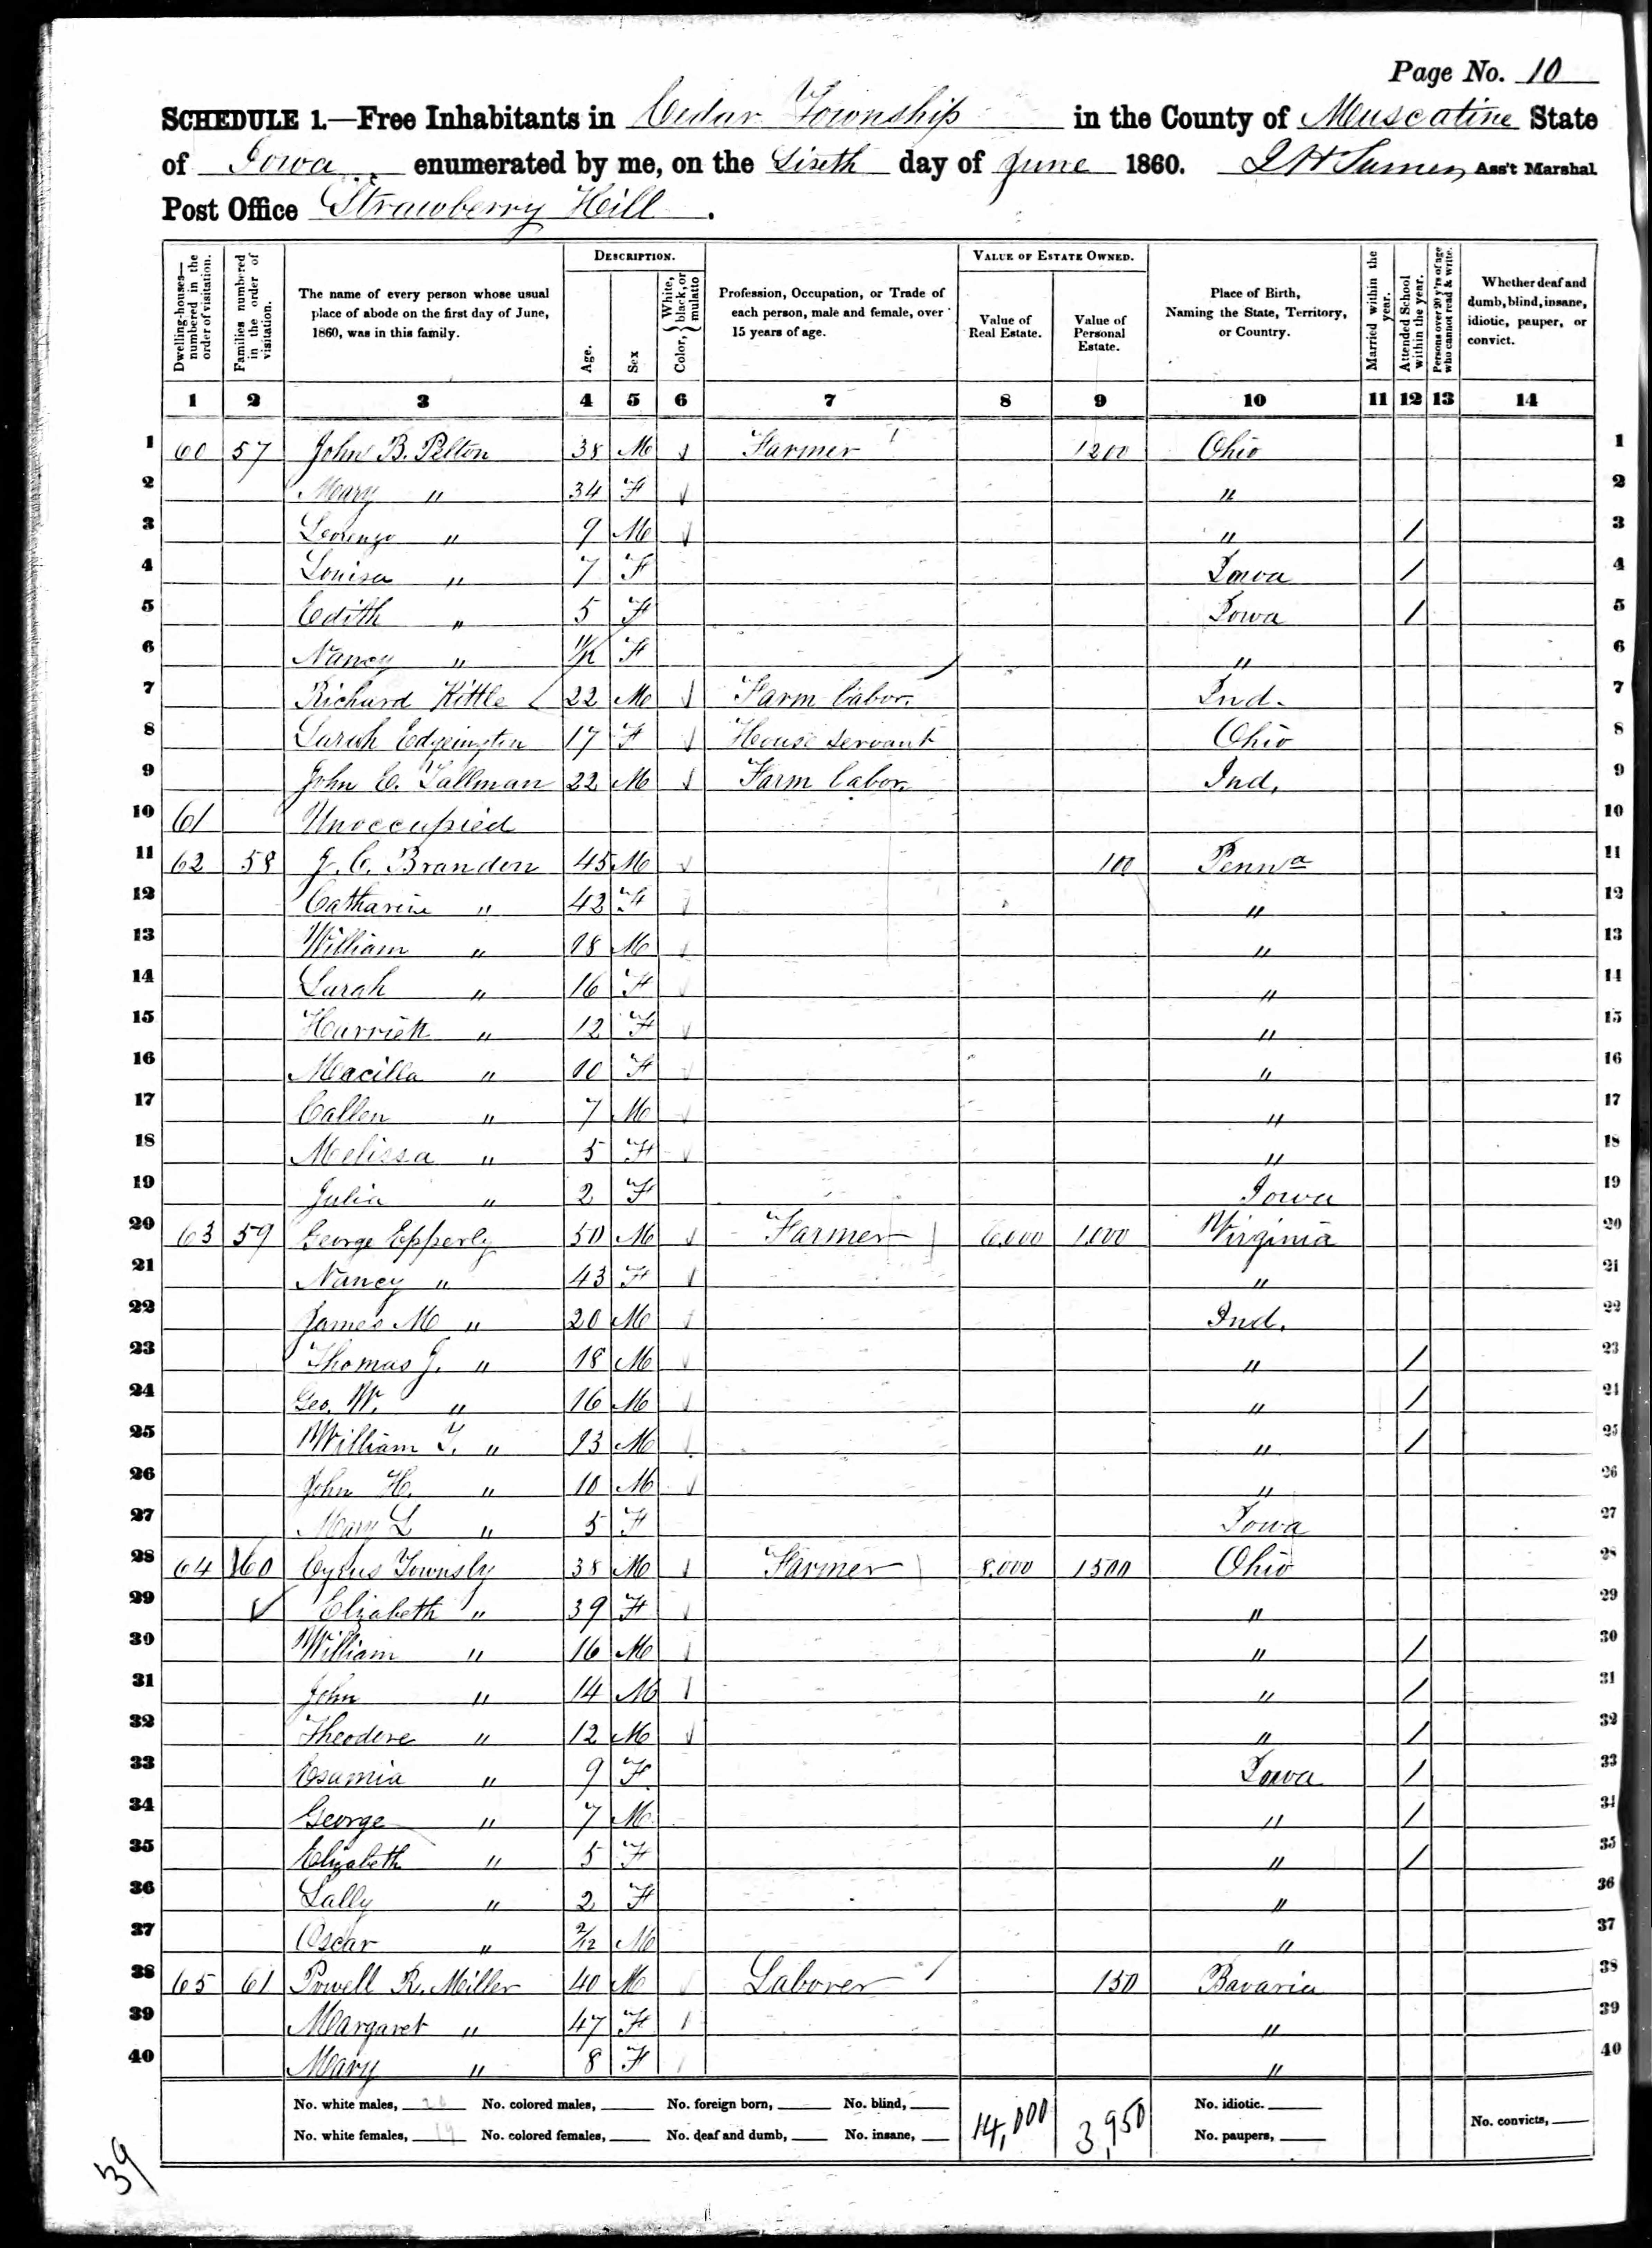 Page No. 10
SCHEDULE 1.—Free Inhabitants in Cedar Township in the County of Muscatine State
of Iowa enumerated by me, on the Sixth day of June 1860. Ass't Marshal.
Post Office Strawberry Hill.
Dwelling-houses—numbered in the order of visitation. Families numbered in the order of visitation. The name of every person whose usual place of abode on the first day of June, 1860, was in this family. DESCRIPTION. Age. Sex Color, { White, black, or mulatto Profession, Occupation, or Trade of each person, male and female, over 15 years of age. VALUE OF ESTATE OWNED. Value of Real Estate. Value of Personal Estate. Place of Birth, Naming the State, Territory, or Country. Married within the year. Attended School within the year. Persons over 20 y'rs of age who cannot read & write. Whether deaf and dumb, blind, insane, idiotic, pauper, or convict.
1 2 3 4 5 6 7 8 9 10 11 12 13 14
1 60 57 John B. Pelton 38 M Farmer 1200 Ohio 1
2 Mary " 34 F " 2
3 Lorenzo " 9 M " / 3
4 Louisa " 7 F Iowa / 4
5 Edith " 5 F Iowa / 5
6 Nancy " 11/12 F " 6
7 Richard Kittle 22 M Farm labor. Ind. 7
8 Sarah Edgeington 17 F House servant Ohio 8
9 John C. Tallman 22 M Farm labor. Ind. 9
10 61 Unoccupied 10
11 62 58 J. C. Brandon 45 M 100 Penna 11
12 Catharine " 42 F " 12
13 William " 18 M " 13
14 Sarah " 16 F " 14
15 Harriett " 12 F " 15
16 Macilla " 10 F " 16
17 Callen " 7 M " 17
18 Melissa " 5 F " 18
19 Julia " 2 F Iowa 19
20 63 59 George Epperly 50 M Farmer 6,000 1,000 Virginia 20
21 Nancy " 43 F " 21
22 James M " 20 M Ind. 22
23 Thomas J. " 18 M " / 23
24 Geo. W. " 16 M " / 24
25 William T. " 13 M " / 25
26 John H. " 10 M " 26
27 Mary L " 5 F Iowa 27
28 64 60 Cyrus Townsly 38 M Farmer 8,000 1500 Ohio 28
29 Elizabeth " 39 F " 29
30 William " 16 M " / 30
31 John " 14 M " / 31
32 Theodore " 12 M " / 32
33 " 9 F Iowa / 33
34 George " 7 M " / 34
35 Elizabeth " 5 F " / 35
36 Sally " 2 F " 36
37 Oscar " 2/12 M " 37
38 65 61 Powell R. Miller 40 M Laborer 150 Bavaria 38
39 Margaret " 47 F " 39
40 Mary " 8 F " 40
No. white males, 20 No. colored males, No. foreign born, No. blind, 14,000 3,950 No. idiotic. No. convicts,
No. white females, 19 No. colored females, No. deaf and dumb, No. insane, No. paupers,
39